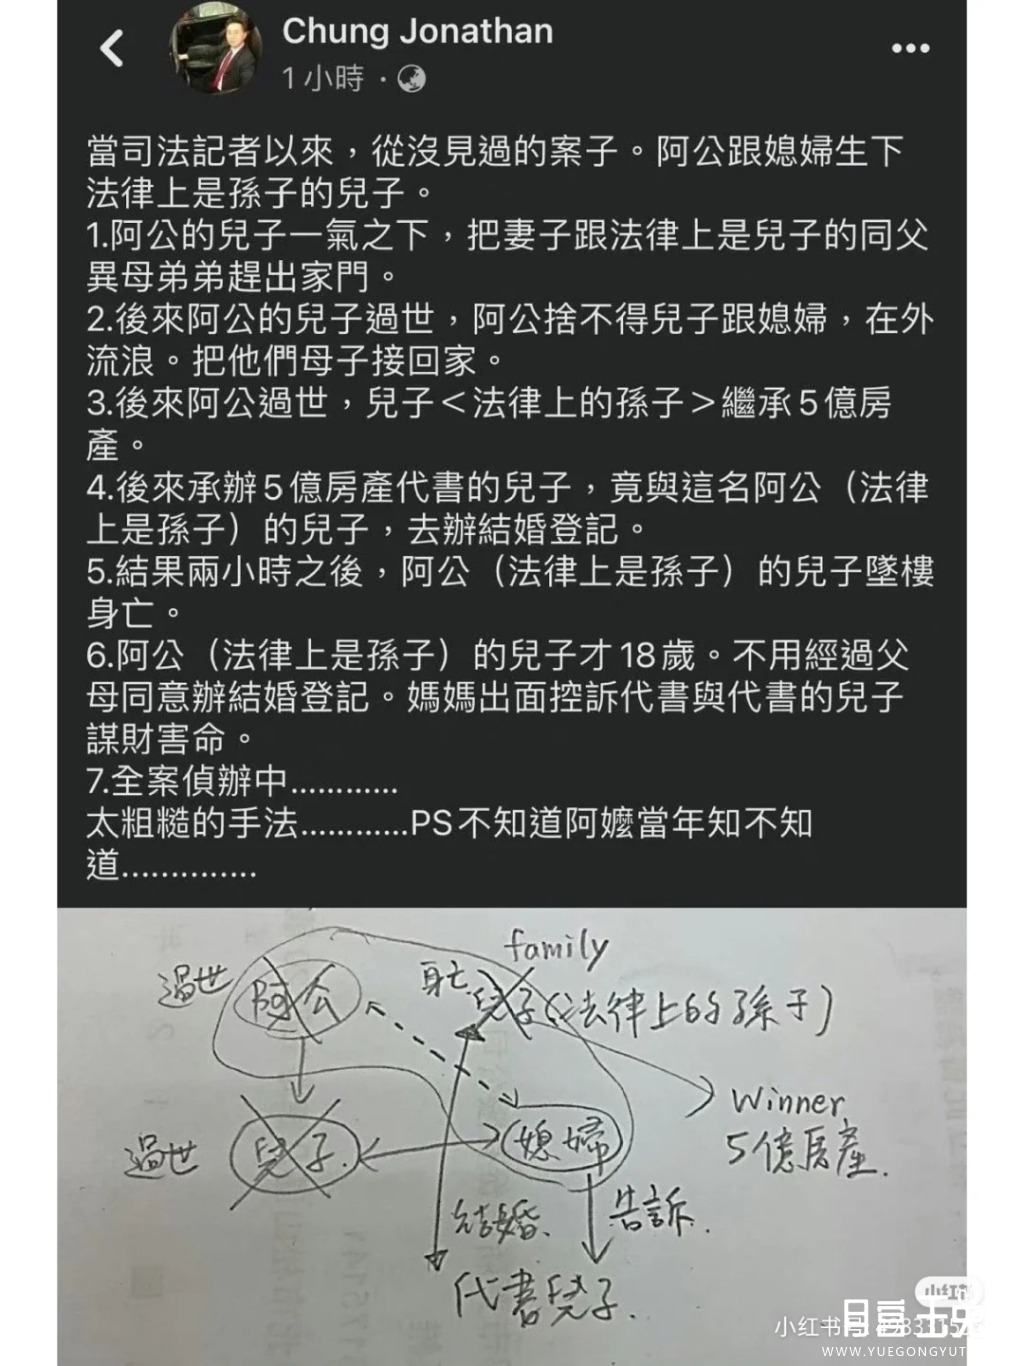 Chung Jonathan
1 小時 ·
當司法記者以來，從沒見過的案子。阿公跟媳婦生下
法律上是孫子的兒子。
1.阿公的兒子一氣之下，把妻子跟法律上是兒子的同父
異母弟弟趕出家門。
2.後來阿公的兒子過世，阿公捨不得兒子跟媳婦，在外
流浪。把他們母子接回家。
3.後來阿公過世，兒子＜法律上的孫子＞繼承5億房
產。
4.後來承辦5億房產代書的兒子，竟與這名阿公（法律
上是孫子）的兒子，去辦結婚登記。
5.結果兩小時之後，阿公（法律上是孫子）的兒子墜樓
身亡。
6.阿公（法律上是孫子）的兒子才18歲。不用經過父
母同意辦結婚登記。媽媽出面控訴代書與代書的兒子
謀財害命。
7.全案偵辦中…………
太粗糙的手法…………PS不知道阿嬤當年知不知
道..............
family
過世 阿公 身亡 兒子(法律上的孫子)
Winner
5億房產.
過世 兒子. 媳婦
結婚. 告訴.
代書兒子.
小红书
小红书
WWW.YUEGONGYUT